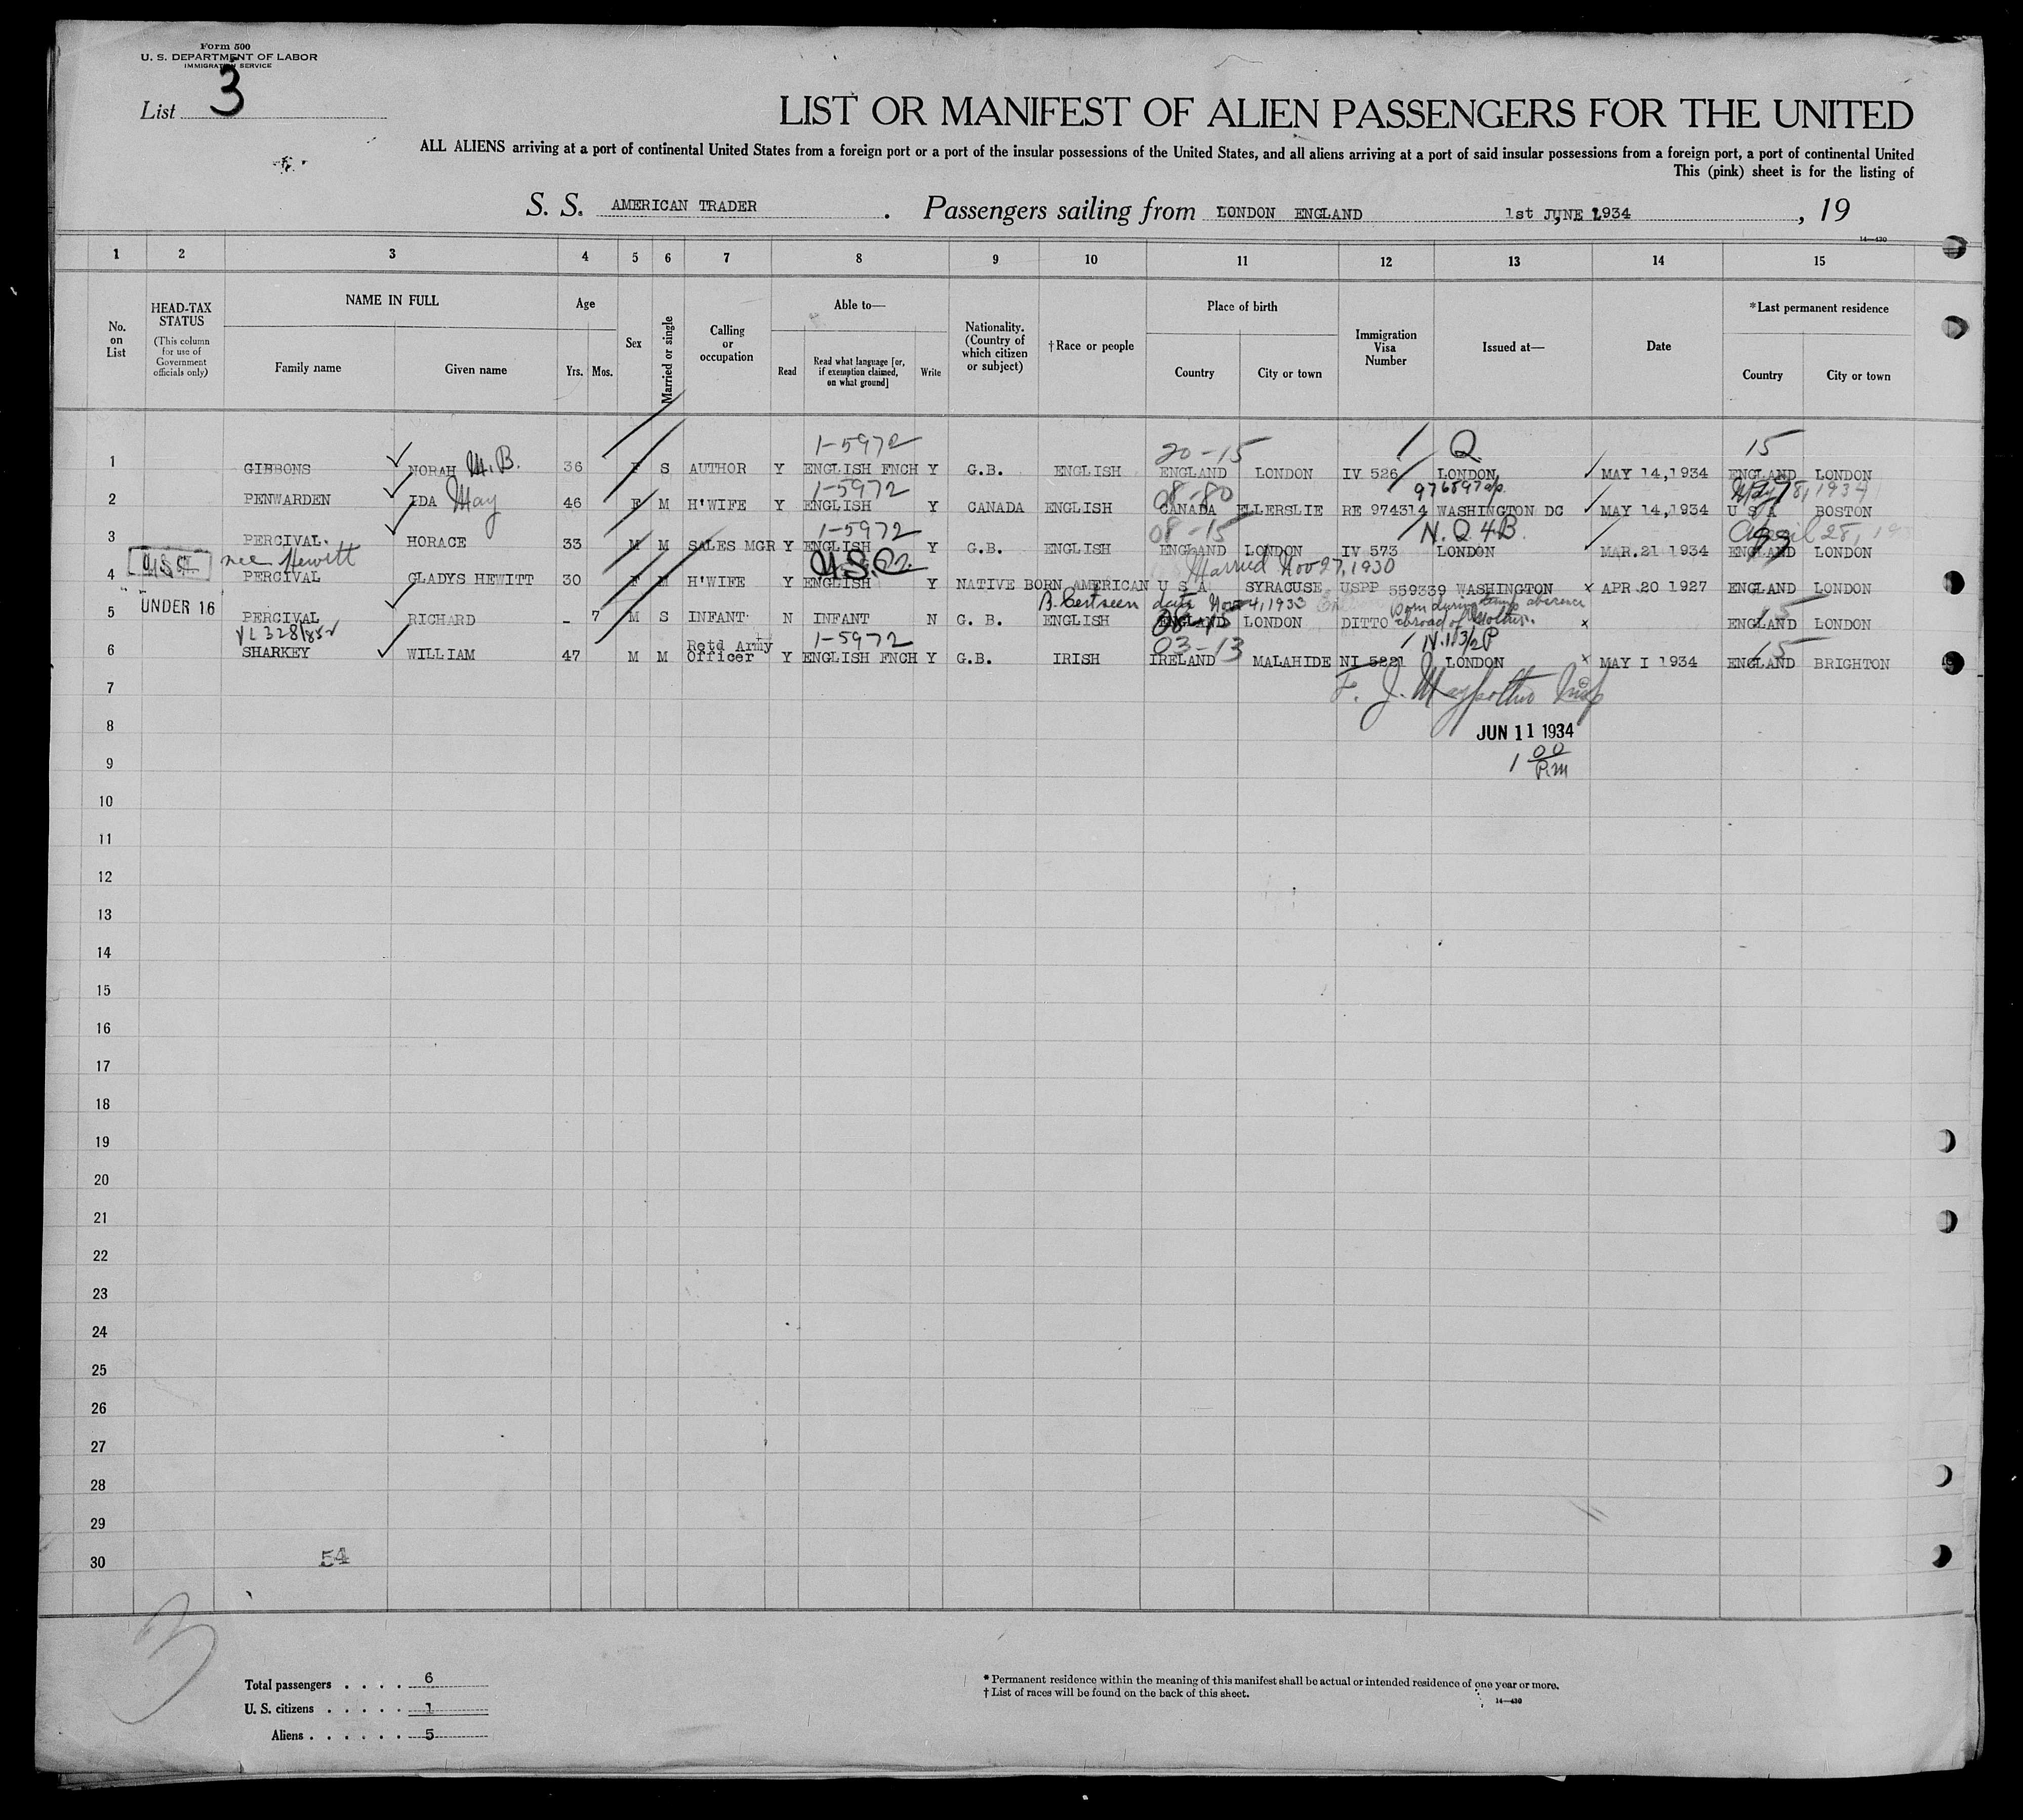 Form 500
U. S. DEPARTMENT OF LABOR
IMMIGRATION SERVICE
List 3
LIST OR MANIFEST OF ALIEN PASSENGERS FOR THE UNITED
ALL ALIENS arriving at a port of continental United States from a foreign port or a port of the insular possessions of the United States, and all aliens arriving at a port of said insular possessions from a foreign port, a port of continental United
This (pink) sheet is for the listing of
S. S. AMERICAN TRADER . Passengers sailing from LONDON ENGLAND 1st JUNE 1934 , 19
14—430
1 2 3 4 5 6 7 8 9 10 11 12 13 14 15
No. on List
HEAD-TAX STATUS
(This column for use of Government officials only)
NAME IN FULL
Family name Given name
Age
Yrs. Mos.
Sex
Married or single
Calling or occupation
Able to—
Read
Read what language [or, if exemption claimed, on what ground]
Write
Nationality. (Country of which citizen or subject)
†Race or people
Place of birth
Country City or town
Immigration Visa Number
Issued at—
Date
*Last permanent residence
Country City or town
1-5972 20-15 Q 15
1 GIBBONS NORAH M. B. 36 F S AUTHOR Y ENGLISH FNCH Y G.B. ENGLISH ENGLAND LONDON IV 526 LONDON MAY 14,1934 ENGLAND LONDON
1-5972 08-80 976897
2 PENWARDEN IDA May 46 F M H'WIFE Y ENGLISH Y CANADA ENGLISH CANADA ELLERSLIE RE 974314 WASHINGTON DC MAY 14,1934 U S A BOSTON
1-5972 08-15 N. Q. 4B. April 28,
3 PERCIVAL. HORACE 33 M M SALES MGR Y ENGLISH Y G.B. ENGLISH ENGLAND LONDON IV 573 LONDON MAR.21 1934 ENGLAND LONDON
nee Hewitt U.S.C. Married Nov 27, 1930
4 PERCIVAL GLADYS HEWITT 30 F M H'WIFE Y ENGLISH Y NATIVE BORN AMERICAN U S A SYRACUSE USPP 559339 WASHINGTON x APR.20 1927 ENGLAND LONDON
UNDER 16
B. Cert seen date Nov 4, 1933 Born during temp absence abroad of Mother.
5 PERCIVAL RICHARD _ 7 M S INFANT N INFANT N G. B. ENGLISH ENGLAND LONDON DITTO x ENGLAND LONDON
1-5972 03-13 15
6 SHARKEY WILLIAM 47 M M Retd Army Officer Y ENGLISH FNCH Y G.B. IRISH IRELAND MALAHIDE NI 5221 LONDON x MAY I 1934 ENGLAND BRIGHTON
7
8 JUN 11 1934
9 1 00 P.M
10
11
12
13
14
15
16
17
18
19
20
21
22
23
24
25
26
27
28
29
30 54
3
Total passengers . . . . 6
U. S. citizens . . . . . 1
Aliens . . . . . . 5
* Permanent residence within the meaning of this manifest shall be actual or intended residence of one year or more.
† List of races will be found on the back of this sheet.
14—430